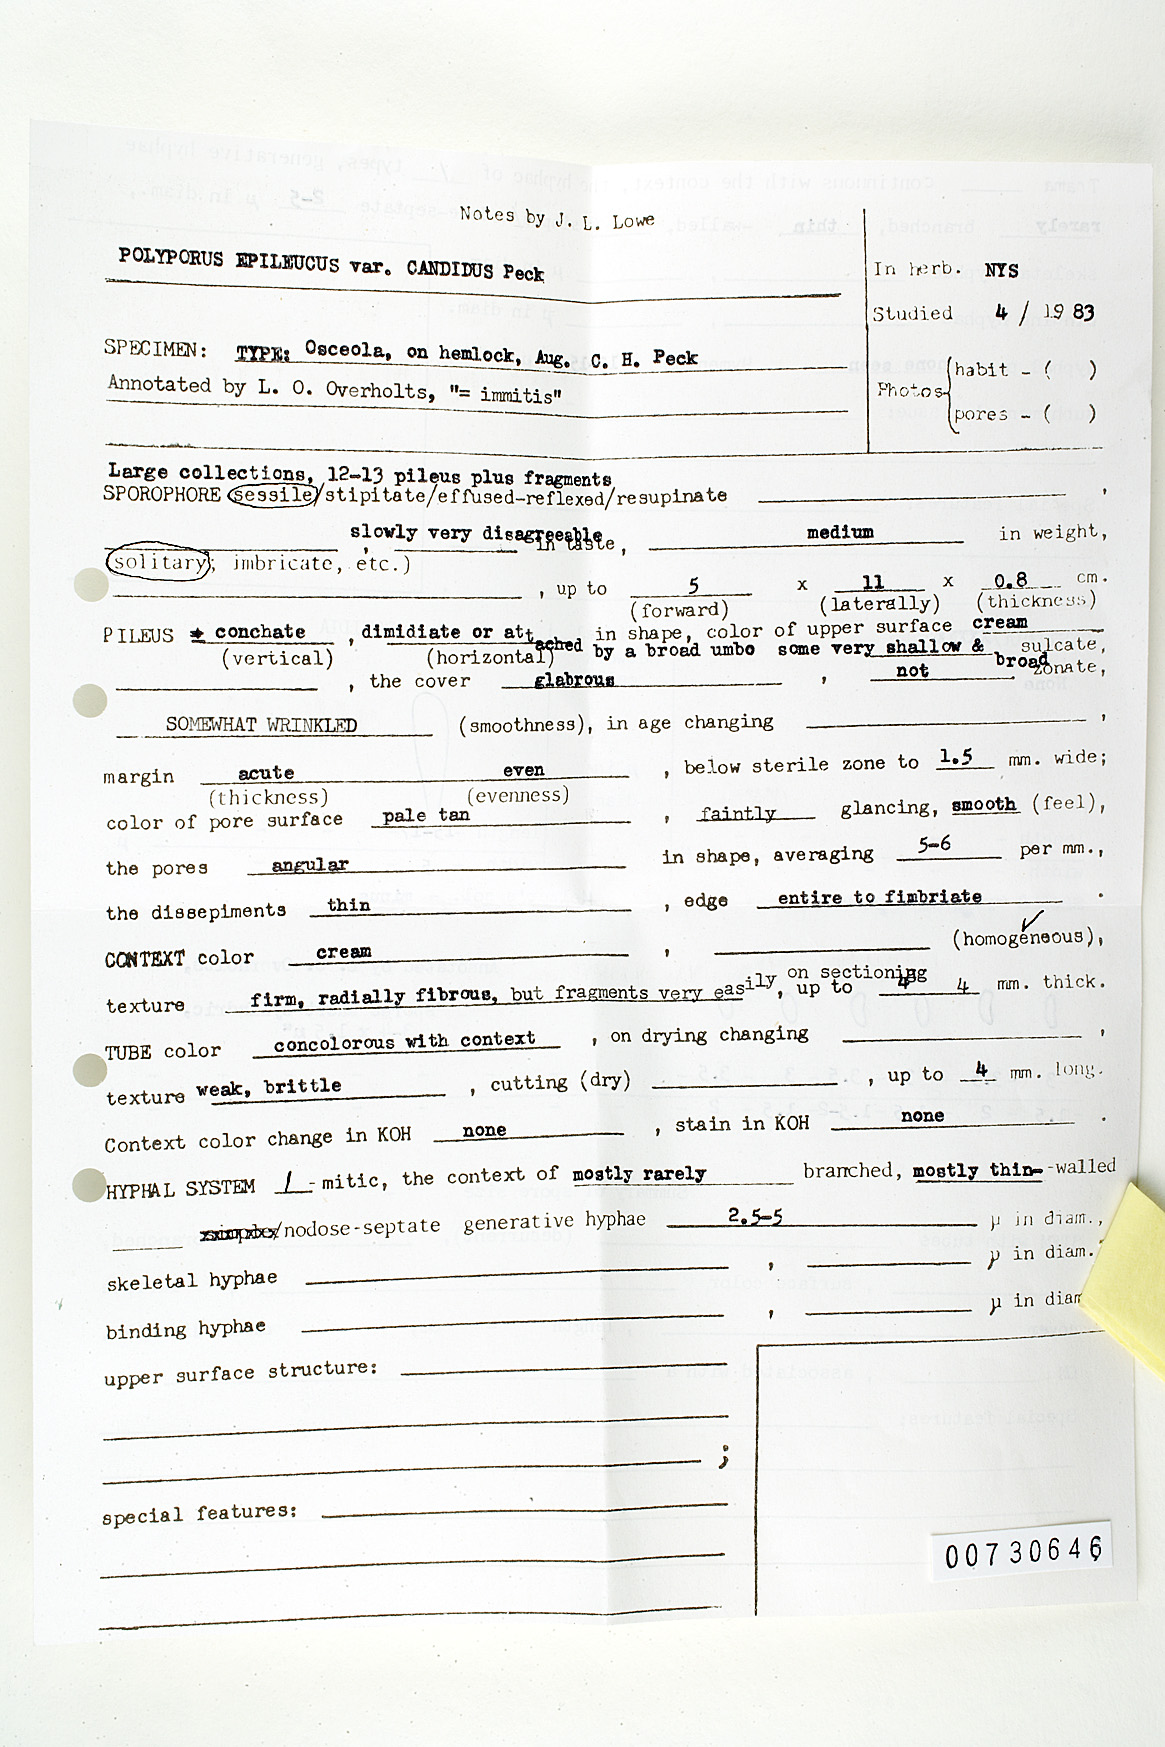 Notes by J. L. Lowe
POLYPORUS EPILEUCUS var. CANDIDUS Peck
In herb. NYS
Studied 4 / 1983
SPECIMEN: TYPE: Osceola, on hemlock, Aug. C. H. Peck
Annotated by L. O. Overholts, "= immitis"
Photos habit - ( )
pores - ( )
Large collections, 12-13 pileus plus fragments
SPOROPHORE sessile/stipitate/effused-reflexed/resupinate ,
, slowly very disagreeable in taste, medium in weight,
(solitary, imbricate, etc.)
, up to 5 x 11 x 0.8 cm.
(forward) (laterally) (thickness)
PILEUS ± conchate , dimidiate or attached in shape, color of upper surface cream
(vertical) (horizontal) by a broad umbo some very shallow & broad sulcate,
, the cover glabrous , not zonate,
SOMEWHAT WRINKLED (smoothness), in age changing ,
margin acute even , below sterile zone to 1.5 mm. wide;
(thickness) (evenness)
color of pore surface pale tan , faintly glancing, smooth (feel),
the pores angular in shape, averaging 5-6 per mm.,
the dissepiments thin , edge entire to fimbriate .
CONTEXT color cream , (homogeneous),
texture firm, radially fibrous, but fragments very easily on sectioning, up to 4 mm. thick.
TUBE color concolorous with context , on drying changing ,
texture weak, brittle , cutting (dry) , up to 4 mm. long.
Context color change in KOH none , stain in KOH none .
HYPHAL SYSTEM 1-mitic, the context of mostly rarely branched, mostly thin--walled
simple/nodose-septate generative hyphae 2.5-5 µ in diam.,
skeletal hyphae , µ in diam.
binding hyphae , µ in diam
upper surface structure:
;
special features:
00730646